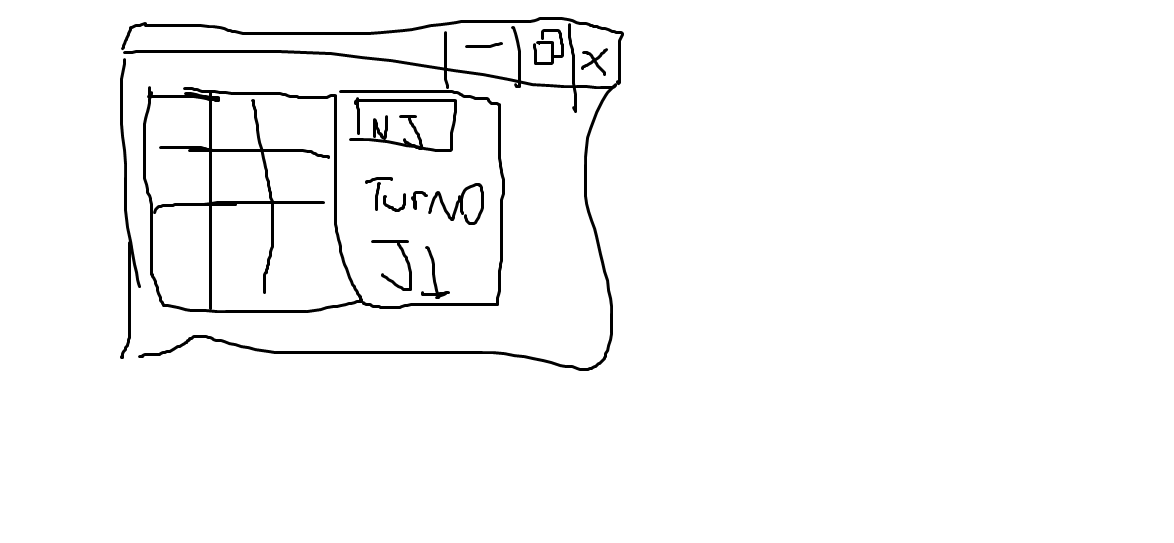 X
INJ
TurNO
J1